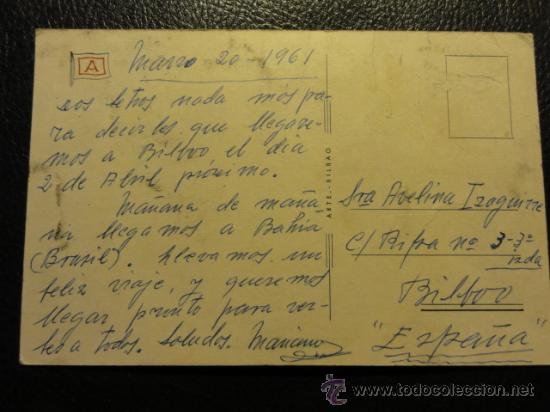 A
Marzo 20-1961
Dos letras nada más pa
ra decirles que llegare
mos a Bilbao el día
2 de Abril próximo.
Mañana de maña
na llegamos a Bahia
(Brasil). Llevamos un
feliz viaje, y queremos
llegar pronto para ver
les a todos. Saludos. Mariano
ARTE.-BILBAO
Sra Avelina Izaguirre
C/ Bifra nº 3-3º
izda
Bilbao
"España"
© todocoleccion.net
www.todocoleccion.net